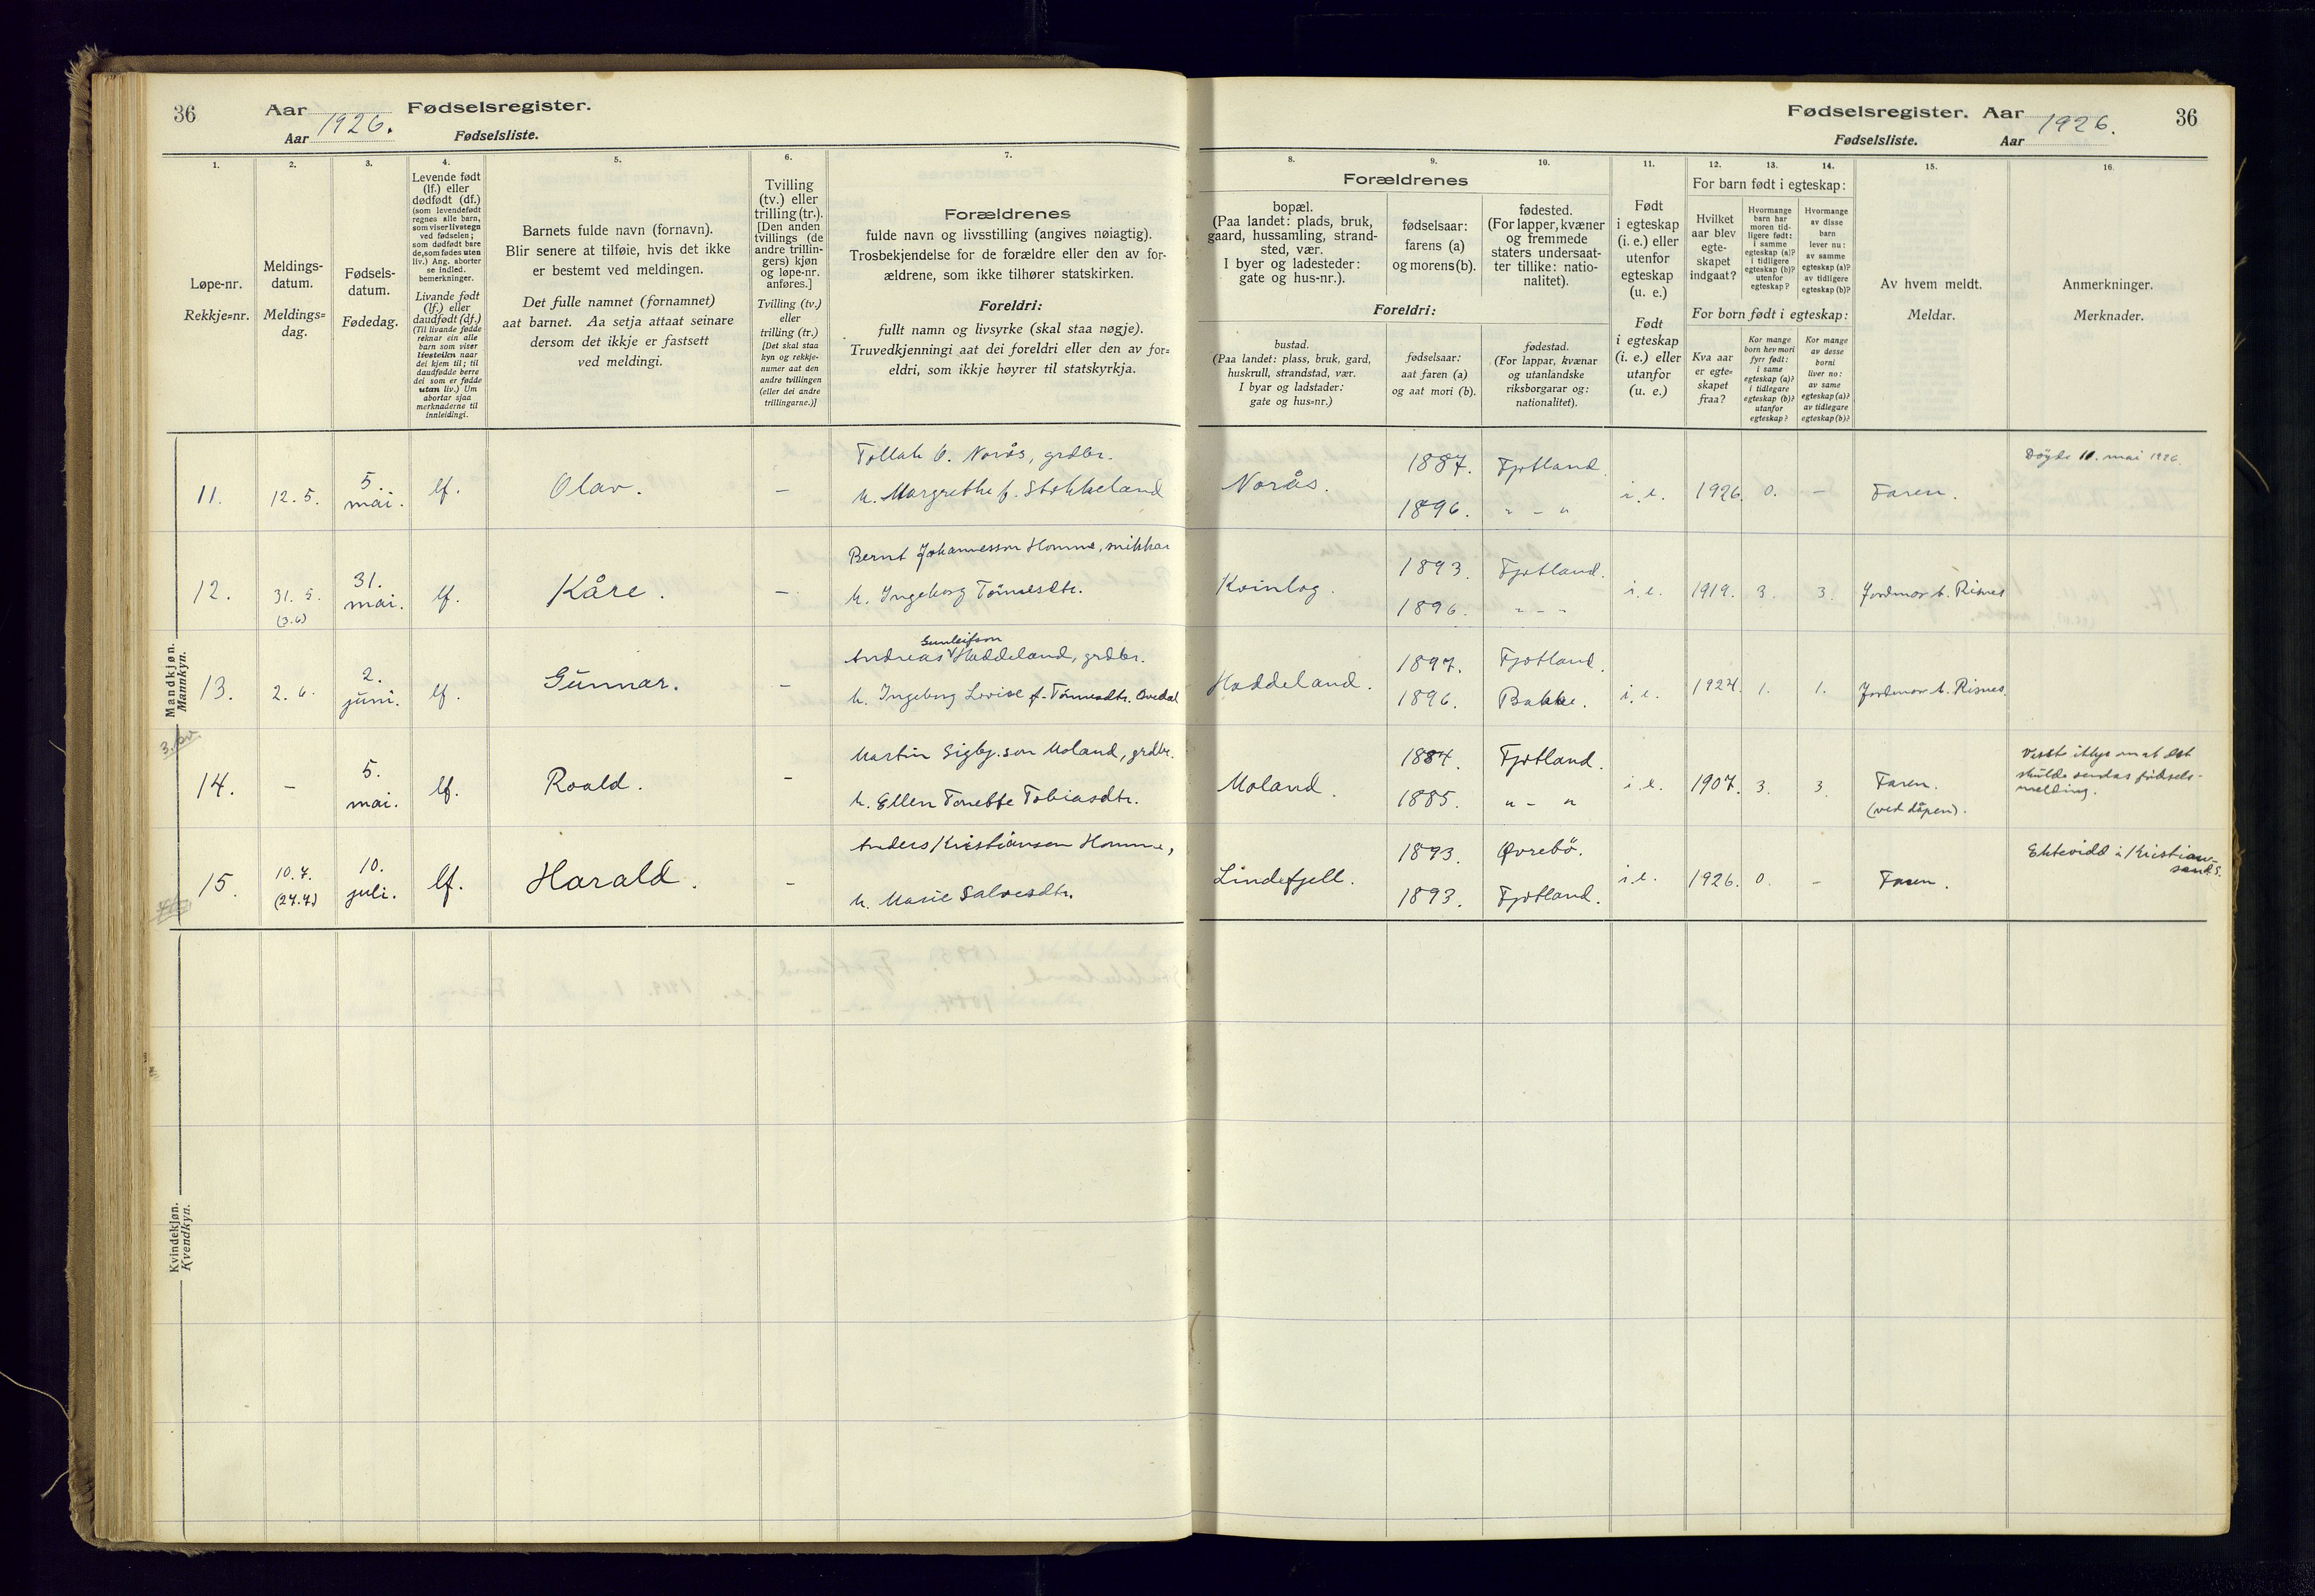 36
Aar 1926. Fødselsregister.
Aar Fødselsliste.
1.
2.
3.
4.
5.
6.
7.
Løpe-nr.
Rekkje=nr.
Meldings-
datum.
Meldings=
dag.
Fødsels-
datum.
Fødedag.
Levende født
(lf.) eller
dødfødt (df.)
(som levendefødt
regnes alle barn,
som viser livstegn
ved fødselen;
som dødfødt bare
de, som fødes uten
liv.) Ang. aborter
se indled.
bemerkninger.
Livande født
(lf.) eller
daudfødt (df.)
(Til livande fødde
reknar ein alle
barn som viser
livsteikn naar
dei kjem til; til
daudfødde berre
dei som er fødde
utan liv.) Um
abortar sjaa
merknaderne til
innleidingi.
Barnets fulde navn (fornavn).
Blir senere at tilføie, hvis det ikke
er bestemt ved meldingen.
Det fulle namnet (fornamnet)
aat barnet. Aa setja attaat seinare
dersom det ikkje er fastsett
ved meldingi.
Tvilling
(tv.) eller
trilling (tr.).
[Den anden
tvillings (de
andre trillin-
gers) kjøn
og løpe-nr.
anføres.]
Tvilling (tv.)
eller
trilling (tr.)
[Det skal staa
kyn og rekkje-
numer aat den
andre tvillingen
(eller dei andre
trillingarne.)]
Forældrenes
fulde navn og livsstilling (angives nøiagtig).
Trosbekjendelse for de forældre eller den av for-
ældrene, som ikke tilhører statskirken.
Foreldri:
fullt namn og livsyrke (skal staa nøgje).
Truvedkjenningi aat dei foreldri eller den av for=
eldri, som ikkje høyrer til statskyrkja.
Mandkjøn.
Mannkyn.
11. 12. 5. 5. mai. lf. Olav. –
Tollak O. Norås, grdbr.
h. Margrethe f. Stokkeland
12. 31. 5. (3.6) 31. mai. lf. Kåre. –
Bernt Johannesson Homme, snikkar
h. Ingeborg Tönnesdtr.
13. 2. 6. 2. juni. lf. Gunnar. –
Gunleifson
Andreas Haddeland, grdbr.
h. Ingeborg Lovise f. Tönnesdtr. Ovedal
14. – 5. mai. lf. Roald. –
Martin Sigbj.son Moland, grdbr.
h. Ellen Tonette Tobiasdtr.
15. 10.7. (27.7) 10. juli. lf. Harald. –
Anders Kristiansen Homme,
h. Marie Salvesdtr.
Kvindekjøn.
Kvendkyn.
Fødselsregister. Aar 1926.
Fødselsliste. Aar
36
8.
9.
10.
11.
12.
13.
14.
15.
16.
Forældrenes
bopæl.
(Paa landet: plads, bruk,
gaard, hussamling, strand-
sted, vær.
I byer og ladesteder:
gate og hus-nr.).
fødselsaar:
farens (a)
og morens (b).
fødested.
(For lapper, kvæner
og fremmede
staters undersaat-
ter tillike: natio-
nalitet).
Foreldri:
bustad.
(Paa landet: plass, bruk, gard,
huskrull, strandstad, vær.
I byar og ladstader:
gate og hus=nr.)
fødselsaar:
aat faren (a)
og aat mori (b).
fødestad.
(For lappar, kvænar
og utanlandske
riksborgarar og:
nationalitet).
Født
i egteskap
(i. e.) eller
utenfor
egteskap
(u. e.)
Født
i egteskap
(i. e.) eller
utanfor
(u. e.)
For barn født i egteskap:
Hvilket
aar blev
egte-
skapet
indgaat?
Hvormange
barn har
moren tid-
ligere født:
i samme
egteskap (a)?
i tidligere
egteskap (b)?
utenfor
egteskap?
Hvormange
av disse
barn
lever nu:
av samme
egteskap (a)?
av tidligere
egteskap (b)?
For born født i egteskap:
Kva aar
er egte-
skapet
fraa?
Kor mange
born hev mori
fyrr født:
i same
egteskap (a)?
i tidlegare
egteskap (b)?
utanfor
egteskap?
Kor mange
av desse
borni
liver no:
av same
egteskap (a)?
av tidlegare
egteskap (b)?
Av hvem meldt.
Meldar.
Anmerkninger.
Merknader.
Norås. 1887. Fjotland.
1896. " – "
i.e. 1926. 0. – Faren.
Döyde 11. mai 1926.
Kvinlog. 1893. Fjotland.
1896. " – "
i.e. 1919. 3. 3. Jordmor t. Risnes
Haddeland. 1897. Fjotland.
1896. Bakke.
i.e. 1924. 1. 1. Jordmor t. Risnes.
Moland. 1884. Fjotland.
1885. " – "
i.e. 1907. 3. 3. Faren.
(ved dåpen).
Visste ikkje om at det
skulde sendas fødsels-
melding.
Lindefjell. 1893. Øvrebö.
1893. Fjotland.
i.e. 1926. 0. – Faren.
Ektevidd i Kristian-
sand S.